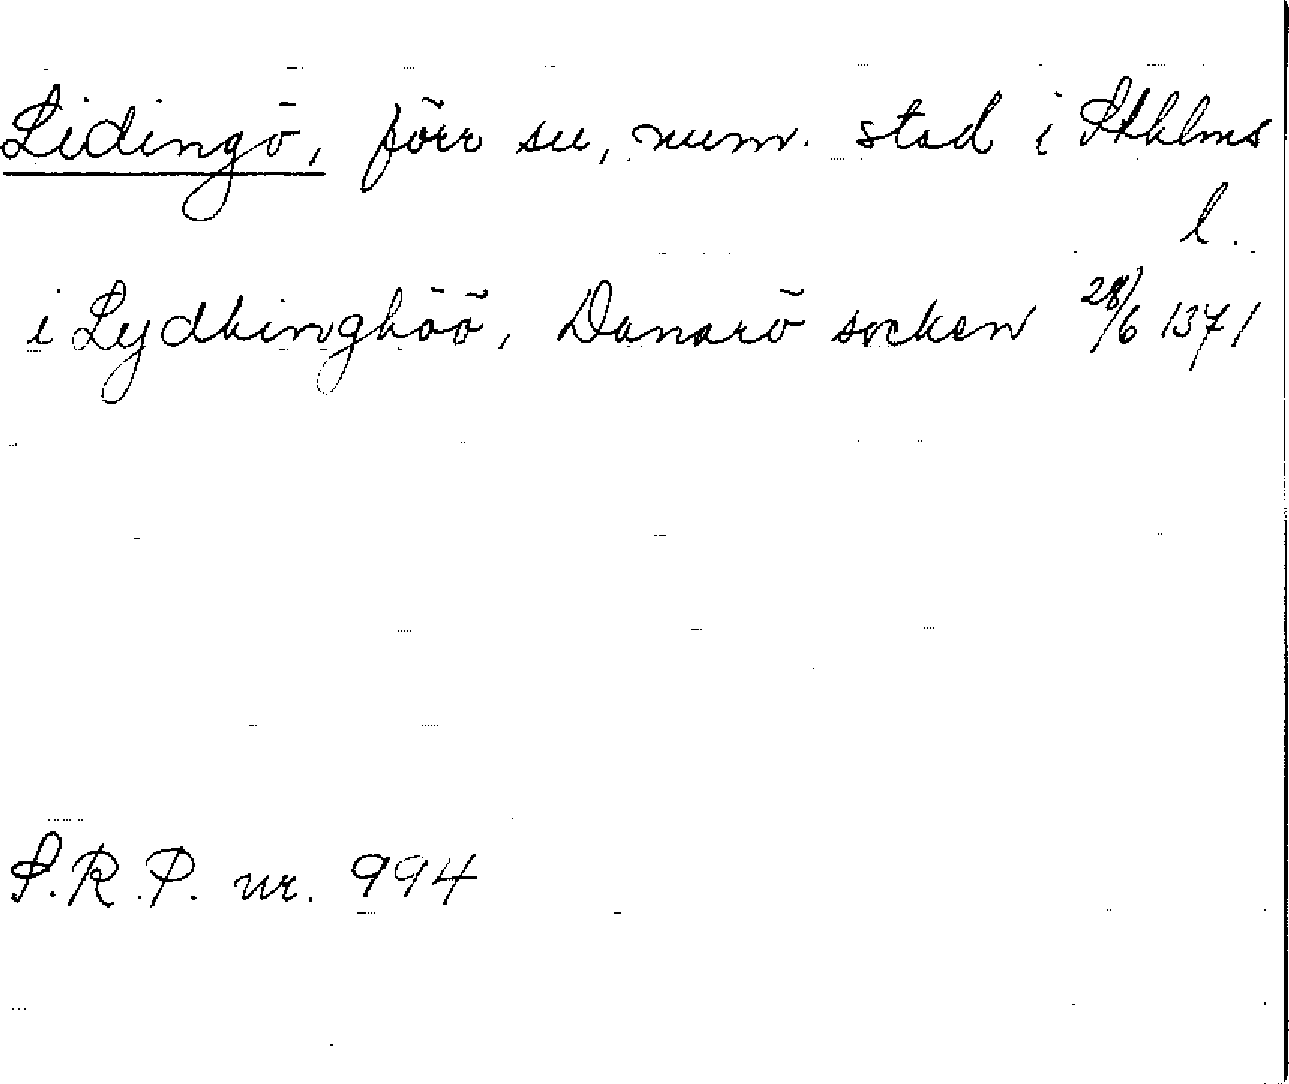 Lidingö, förr sn, numv. stad i Sthlms
l.
i Lydhinghöö, Danarö socken 28/6 1371
S.R.P. nr. 994